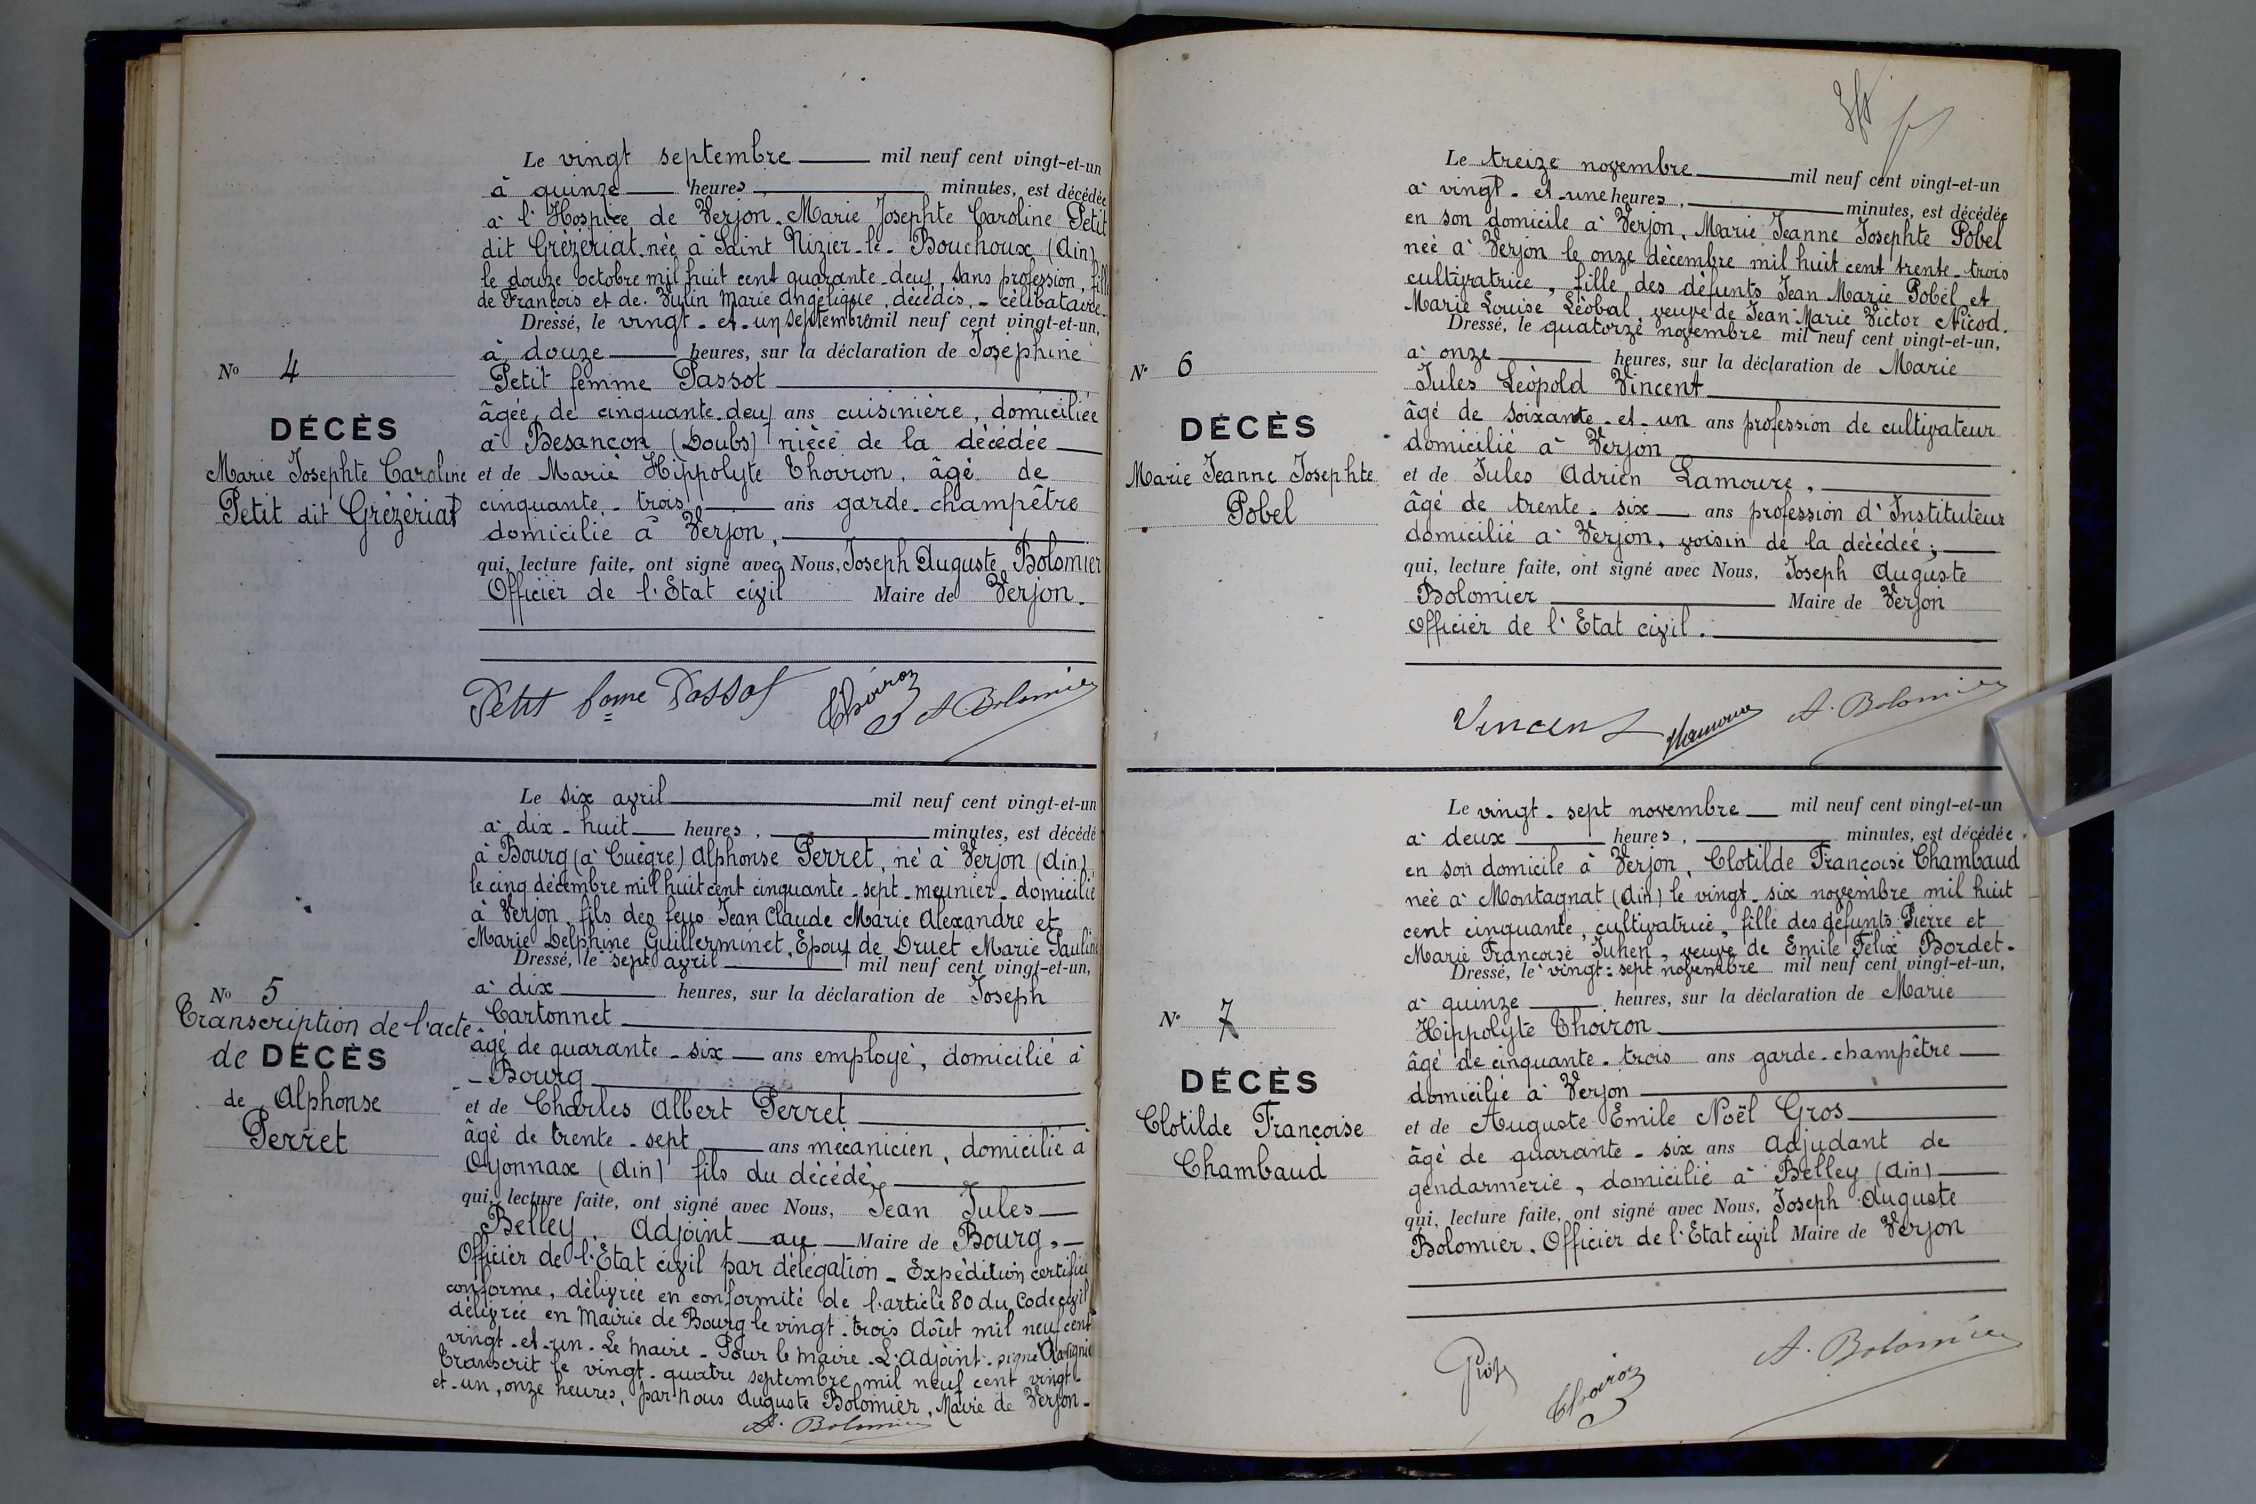 Le vingt septembre mil neuf cent vingt-et-un
à quinze heures, minutes, est décédée
à l'Hospice de Verjon. Marie Josephte Caroline Petit
dit Grézériat. née à Saint Nizier-le-Bouchoux (Ain)
le douze octobre mil huit cent quarante-deux, sans profession, fille
de François et de Vulin Marie Angélique, décédés, - célibataire.
Dressé, le vingt-et-un septembre mil neuf cent vingt-et-un,
à douze heures, sur la déclaration de Joséphine
Petit femme Passot
âgée, de cinquante-deux ans cuisinière, domiciliée
à Besançon (Doubs) nièce de la décédée
et de Marie Hippolyte Thoiron, âgé de
cinquante-trois ans garde-champêtre
domicilié à Verjon,
qui, lecture faite, ont signé avec Nous, Joseph Auguste Bolomier
Officier de l'Etat civil Maire de Verjon.
No 4
DÉCÈS
Marie Josephte Caroline
Petit dit Grézériat
Petit fome Passot Thoiron A Bolomier
Le six avril mil neuf cent vingt-et-un
à dix-huit heures, minutes, est décédé
à Bourg (à Cuègre) Alphonse Perret, né à Verjon (Ain),
le cinq décembre mil huit cent cinquante-sept-meunier-domicilié
à Verjon, fils des feus Jean Claude Marie Alexandre et
Marie Delphine Guillerminet, Epoux de Druet Marie Pauline
Dressé, le sept avril mil neuf cent vingt-et-un,
à dix heures, sur la déclaration de Joseph
Cartonnet
âgé de quarante-six ans employé, domicilié à
Bourg
et de Charles Albert Perret
âgé de trente-sept ans mécanicien, domicilié à
Oyonnax (Ain) fils du décédé,
qui, lecture faite, ont signé avec Nous, Jean Jules
Belley, Adjoint au Maire de Bourg,
Officier de l'Etat civil par délégation - Expédition certifiée
conforme, délivrée en conformité de l'article 80 du Code civil
délivrée en Mairie de Bourg le vingt-trois Août mil neuf cent
vingt-et-un. Le Maire - Pour le Maire - L'Adjoint - signé
Transcrit le vingt-quatre septembre mil neuf cent vingt-
et-un, onze heures, par nous Auguste Bolomier, Maire de Verjon-
A. Bolomier
No 5
Transcription de l'acte
de DÉCÈS
de Alphonse
Perret
Le treize novembre mil neuf cent vingt-et-un
à vingt-et-une heures, minutes, est décédée
en son domicile à Verjon, Marie Jeanne Josephte Pobel
née à Verjon le onze décembre mil huit cent trente-trois
cultivatrice, fille des défunts Jean Marie Pobel et
Marie Louise Léobal, veuve de Jean-Marie Victor Nicod.
Dressé, le quatorze novembre mil neuf cent vingt-et-un,
à onze heures, sur la déclaration de Marie
Jules Léopold Vincent
âgé de soixante-et-un ans profession de cultivateur
domicilié à Verjon
et de Jules Adrien Lamoure,
âgé de trente-six ans profession d'Instituteur
domicilié à Verjon, voisin de la décédée;
qui, lecture faite, ont signé avec Nous, Joseph Auguste
Bolomier Maire de Verjon
Officier de l'Etat civil.
No 6
DÉCÈS
Marie Jeanne Josephte
Pobel
Vincent Lamoure A. Bolomier
Le vingt-sept novembre mil neuf cent vingt-et-un
à deux heures, minutes, est décédée
en son domicile à Verjon, Clotilde Françoise Chambaud
née à Montagnat (Ain) le vingt-six novembre mil huit
cent cinquante, cultivatrice, fille des défunts Pierre et
Marie Françoise Juhen, veuve de Emile Félix Bordet.
Dressé, le vingt-sept novembre mil neuf cent vingt-et-un,
à quinze heures, sur la déclaration de Marie
Hippolyte Thoiron
âgé de cinquante-trois ans garde-champêtre
domicilié à Verjon
et de Auguste Emile Noël Gros
âgé de quarante-six ans Adjudant de
gendarmerie, domicilié à Belley (Ain)
qui, lecture faite, ont signé avec Nous, Joseph Auguste
Bolomier. Officier de l'Etat civil Maire de Verjon
No 7
DÉCÈS
Clotilde Françoise
Chambaud
Gros Thoiron A. Bolomier